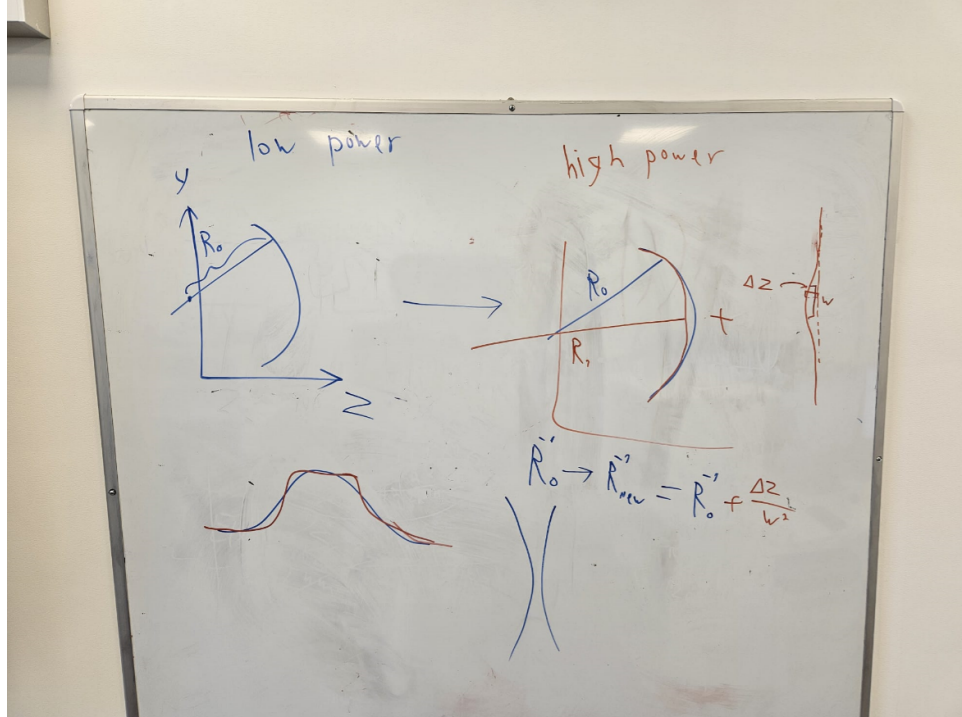 low power
high power
y
R₀
Z
R₀
R,
+
ΔZ
w
R₀⁻¹ → R⁻¹new = R₀⁻¹ + ΔZ/w²